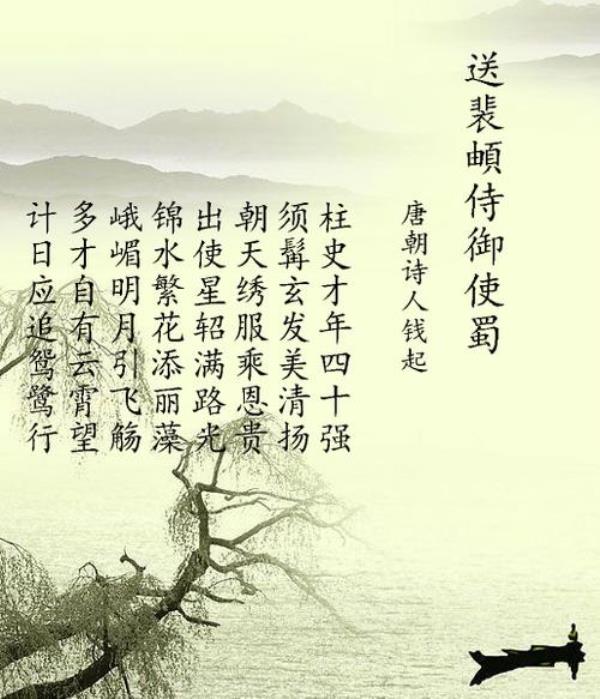 送裴頔侍御使蜀
唐朝诗人钱起
柱史才年四十强
须髯玄发美清扬
朝天绣服乘恩贵
出使星轺满路光
锦水繁花添丽藻
峨嵋明月引飞觞
多才自有云霄望
计日应追鸳鹭行